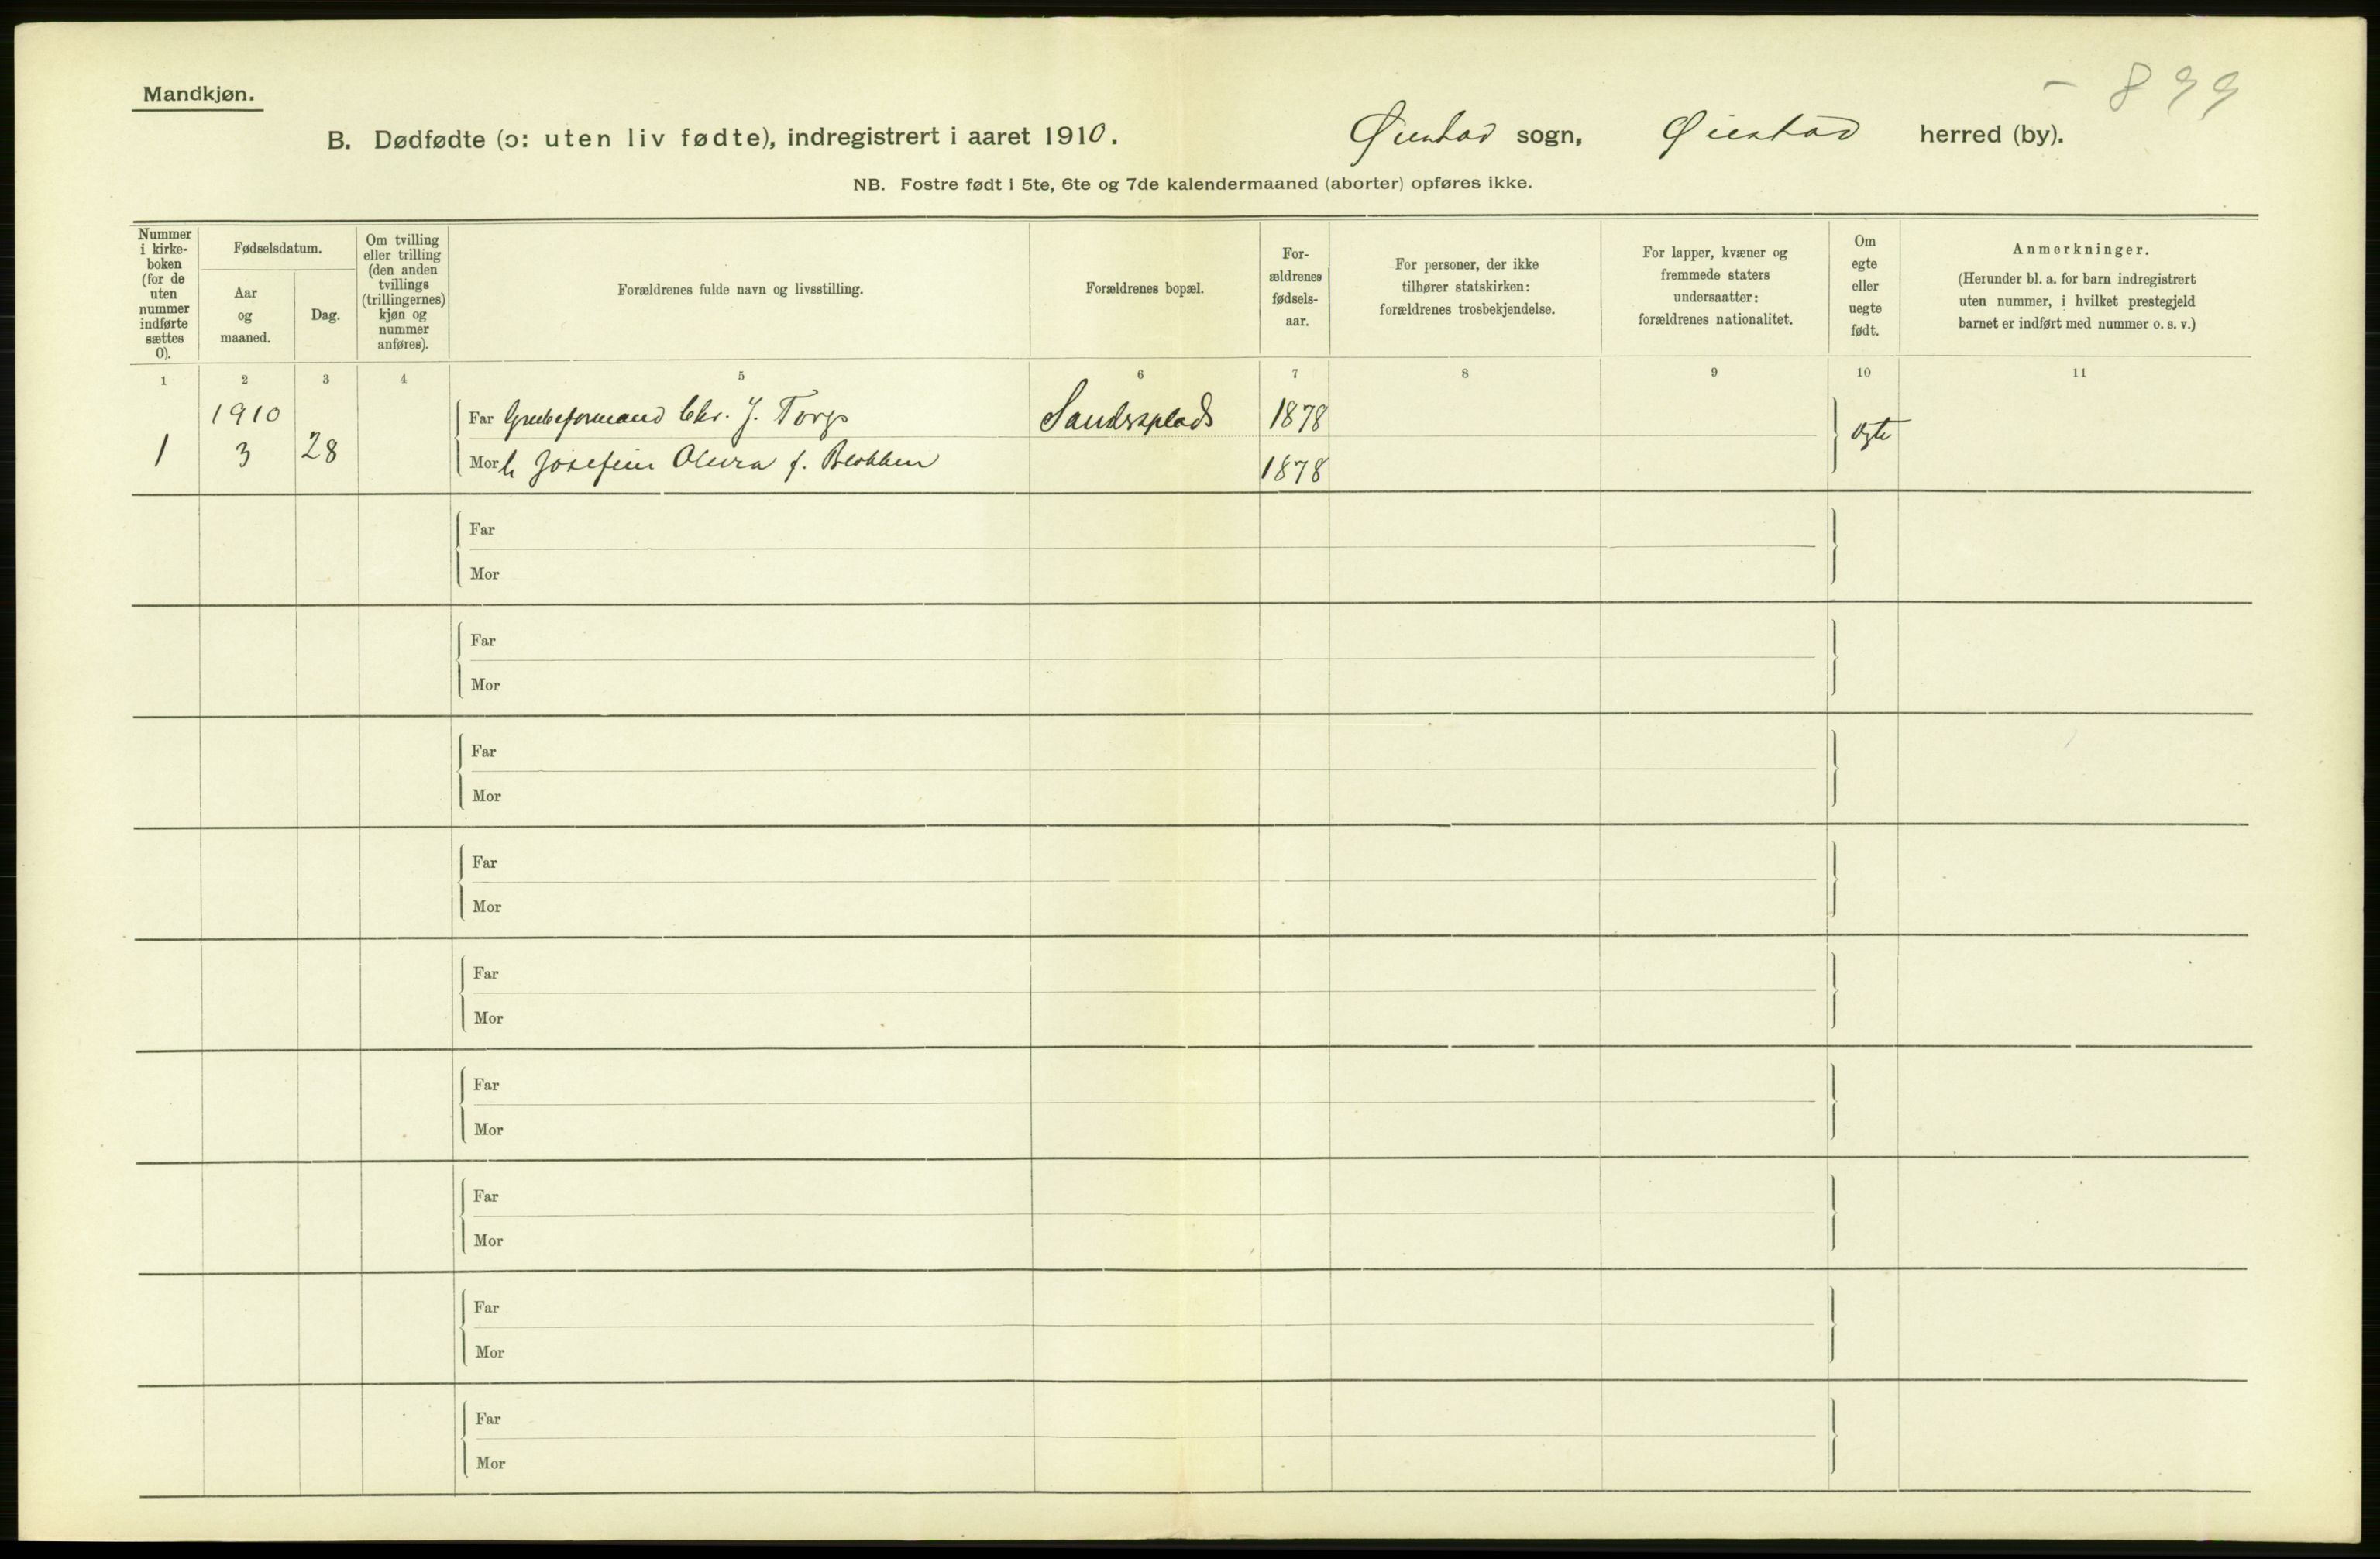 Mandkjøn.
- 899
B. Dødfødte (ɔ: uten liv fødte), indregistrert i aaret 1910. Øiestad sogn, Øiestad herred (by).
NB. Fostre født i 5te, 6te og 7de kalendermaaned (aborter) opføres ikke.
Nummer
i kirke-
boken
(for de
uten
nummer
indførte
sættes
0).
Fødselsdatum.
Aar
og
maaned.
Dag.
Om tvilling
eller trilling
(den anden
tvillings
(trillingernes)
kjøn og
nummer
anføres).
Forældrenes fulde navn og livsstilling.
Forældrenes bopæl.
For-
ældrenes
fødsels-
aar.
For personer, der ikke
tilhører statskirken:
forældrenes trosbekjendelse.
For lapper, kvæner og
fremmede staters
undersaatter:
forældrenes nationalitet.
Om
egte
eller
uegte
født.
Anmerkninger.
(Herunder bl. a. for barn indregistrert
uten nummer, i hvilket prestegjeld
barnet er indført med nummer o. s. v.)
1 2 3 4 5 6 7 8 9 10 11
1910 Far Grubeformand Chr. J. Torp Sandsplads 1878 egte
1 3 28 Mor h Josefine Olivia f. Blokken 1878
Far
Mor
Far
Mor
Far
Mor
Far
Mor
Far
Mor
Far
Mor
Far
Mor
Far
Mor
Far
Mor